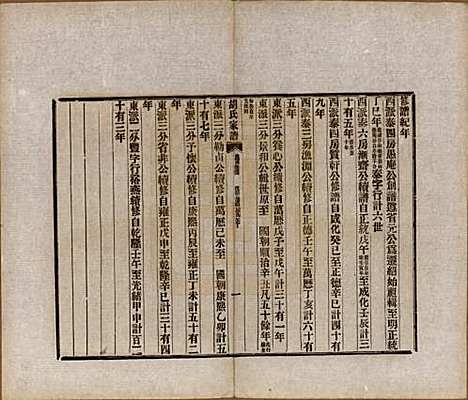 修譜紀年
西派泰四房愚庵公創譜遷省元公爲遷紹始祖輯至明正統
丁巳年
泰字行計六世
西派泰六房漸齋公續修自正統戊午
至成化壬辰計三
十有五年
西派泰四房質軒公修譜自成化癸巳至正德辛巳計四十有
九年
西派三男漁湖公續修自嘉靖壬午至萬歷丁亥計六十有
五年
東派三分養心公續修自萬歷戊子至戊午計三十有一年
東派三分景和公輯世原至 國朝順治辛丑凡五十餘年
胡氏家譜
一
東派三分勅貞公續修自萬歷己未至 國朝康熙乙卯計五
十有七年
東派三分子懷公續修自康熙丙辰至雍正丁未計五十有二
年
東派二分省非公續修自雍正戊申至乾隆辛巳計三十有四
年
東派二分豐字行裕燕續修自乾隆壬午至光緒甲申計百二
十有三年